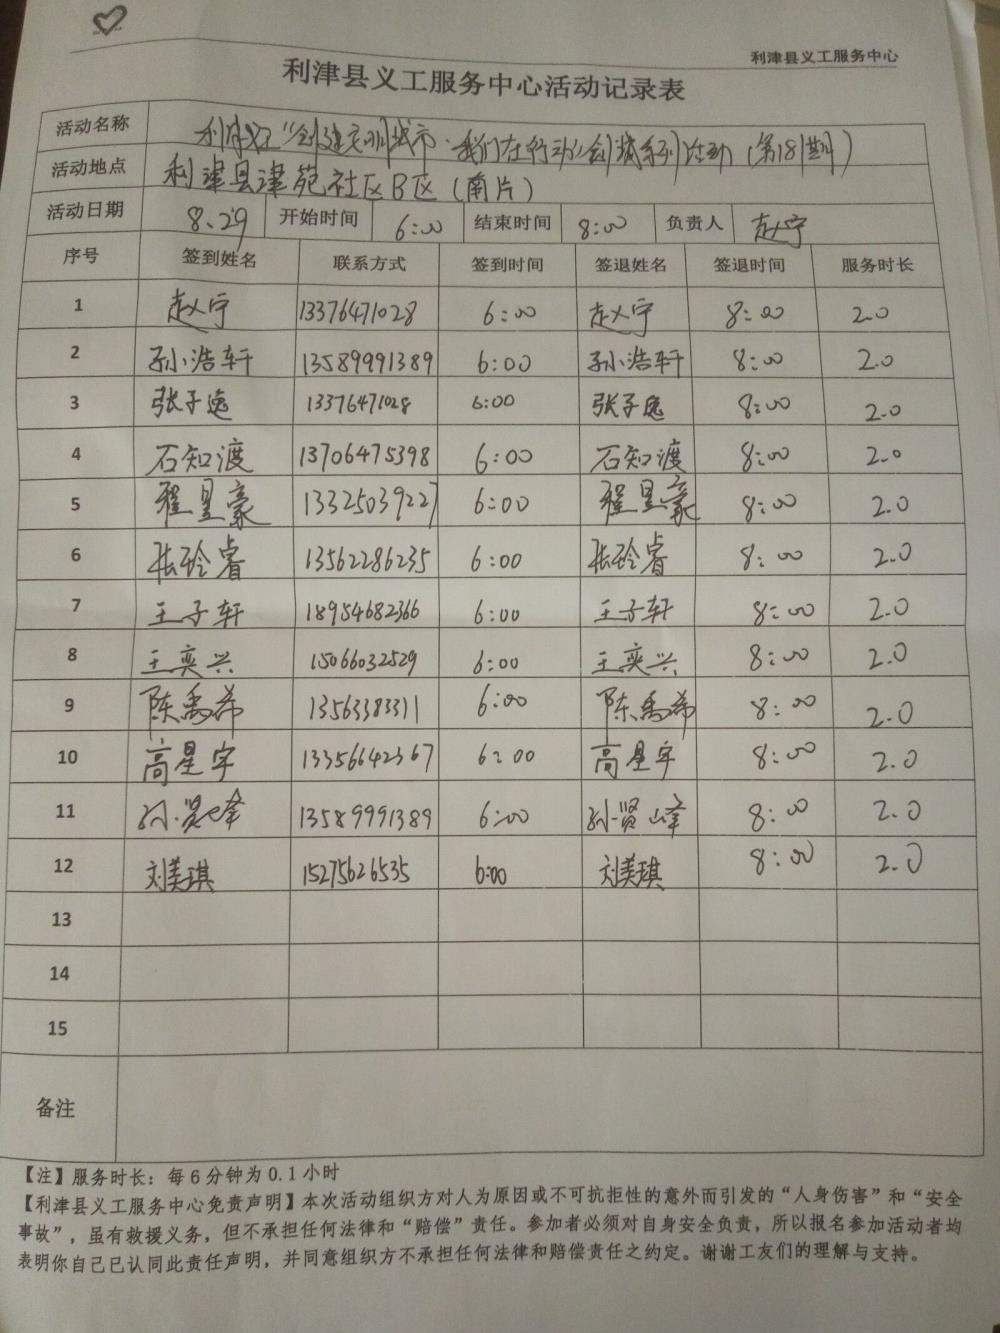 利津县义工服务中心
利津县义工服务中心活动记录表
活动名称 利津义工"创建文明城市·我们在行动"创城系列活动(第181期)
活动地点 利津县津苑社区B区(南片)
活动日期 8.29 开始时间 6:00 结束时间 8:00 负责人 赵宁
序号 签到姓名 联系方式 签到时间 签退姓名 签退时间 服务时长
1 赵宁 13376471028 6:00 赵宁 8:00 2.0
2 孙浩轩 13589991389 6:00 孙浩轩 8:00 2.0
3 张子逸 13376471028 6:00 张子逸 8:00 2.0
4 石知渡 13706475398 6:00 石知渡 8:00 2.0
5 程昱豪 13325039227 6:00 程昱豪 8:00 2.0
6 张玲睿 13562286235 6:00 张玲睿 8:00 2.0
7 王子轩 18954682366 6:00 王子轩 8:00 2.0
8 王奕兴 15066032529 6:00 王奕兴 8:00 2.0
9 陈禹希 13563383311 6:00 陈禹希 8:00 2.0
10 高星宇 13356642367 6:00 高星宇 8:00 2.0
11 孙贤峰 13589991389 6:00 孙贤峰 8:00 2.0
12 刘美琪 15275626535 6:00 刘美琪 8:00 2.0
13
14
15
备注
【注】服务时长：每6分钟为0.1小时
【利津县义工服务中心免责声明】本次活动组织方对人为原因或不可抗拒性的意外而引发的“人身伤害”和“安全
事故”，虽有救援义务，但不承担任何法律和“赔偿”责任。参加者必须对自身安全负责，所以报名参加活动者均
表明你自己已认同此责任声明，并同意组织方不承担任何法律和赔偿责任之约定。谢谢工友们的理解与支持。